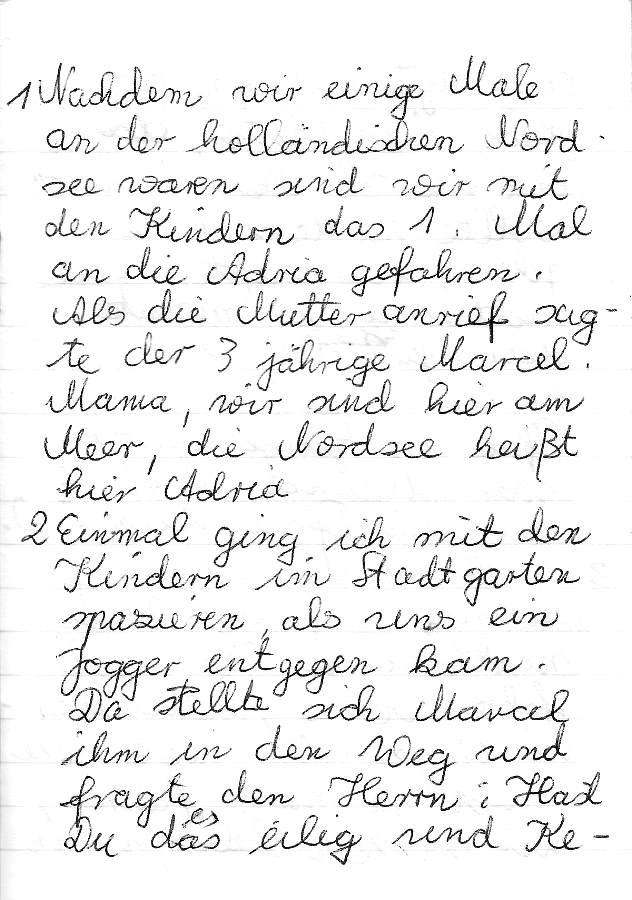 1 Nachdem wir einige Male
an der holländischen Nord-
see waren sind wir mit
den Kindern das 1. Mal
an die Adria gefahren.
Als die Mutter anrief sag-
te der 3 jährige Marcel.
Mama, wir sind hier am
Meer, die Nordsee heißt
hier Adria
2 Einmal ging ich mit den
Kindern im Stadtgarten
spazieren, als uns ein
Jogger entgegen kam.
Da stellte sich Marcel
ihm in den Weg und
fragte den Herrn: Hast
Du das es eilig und Ke-